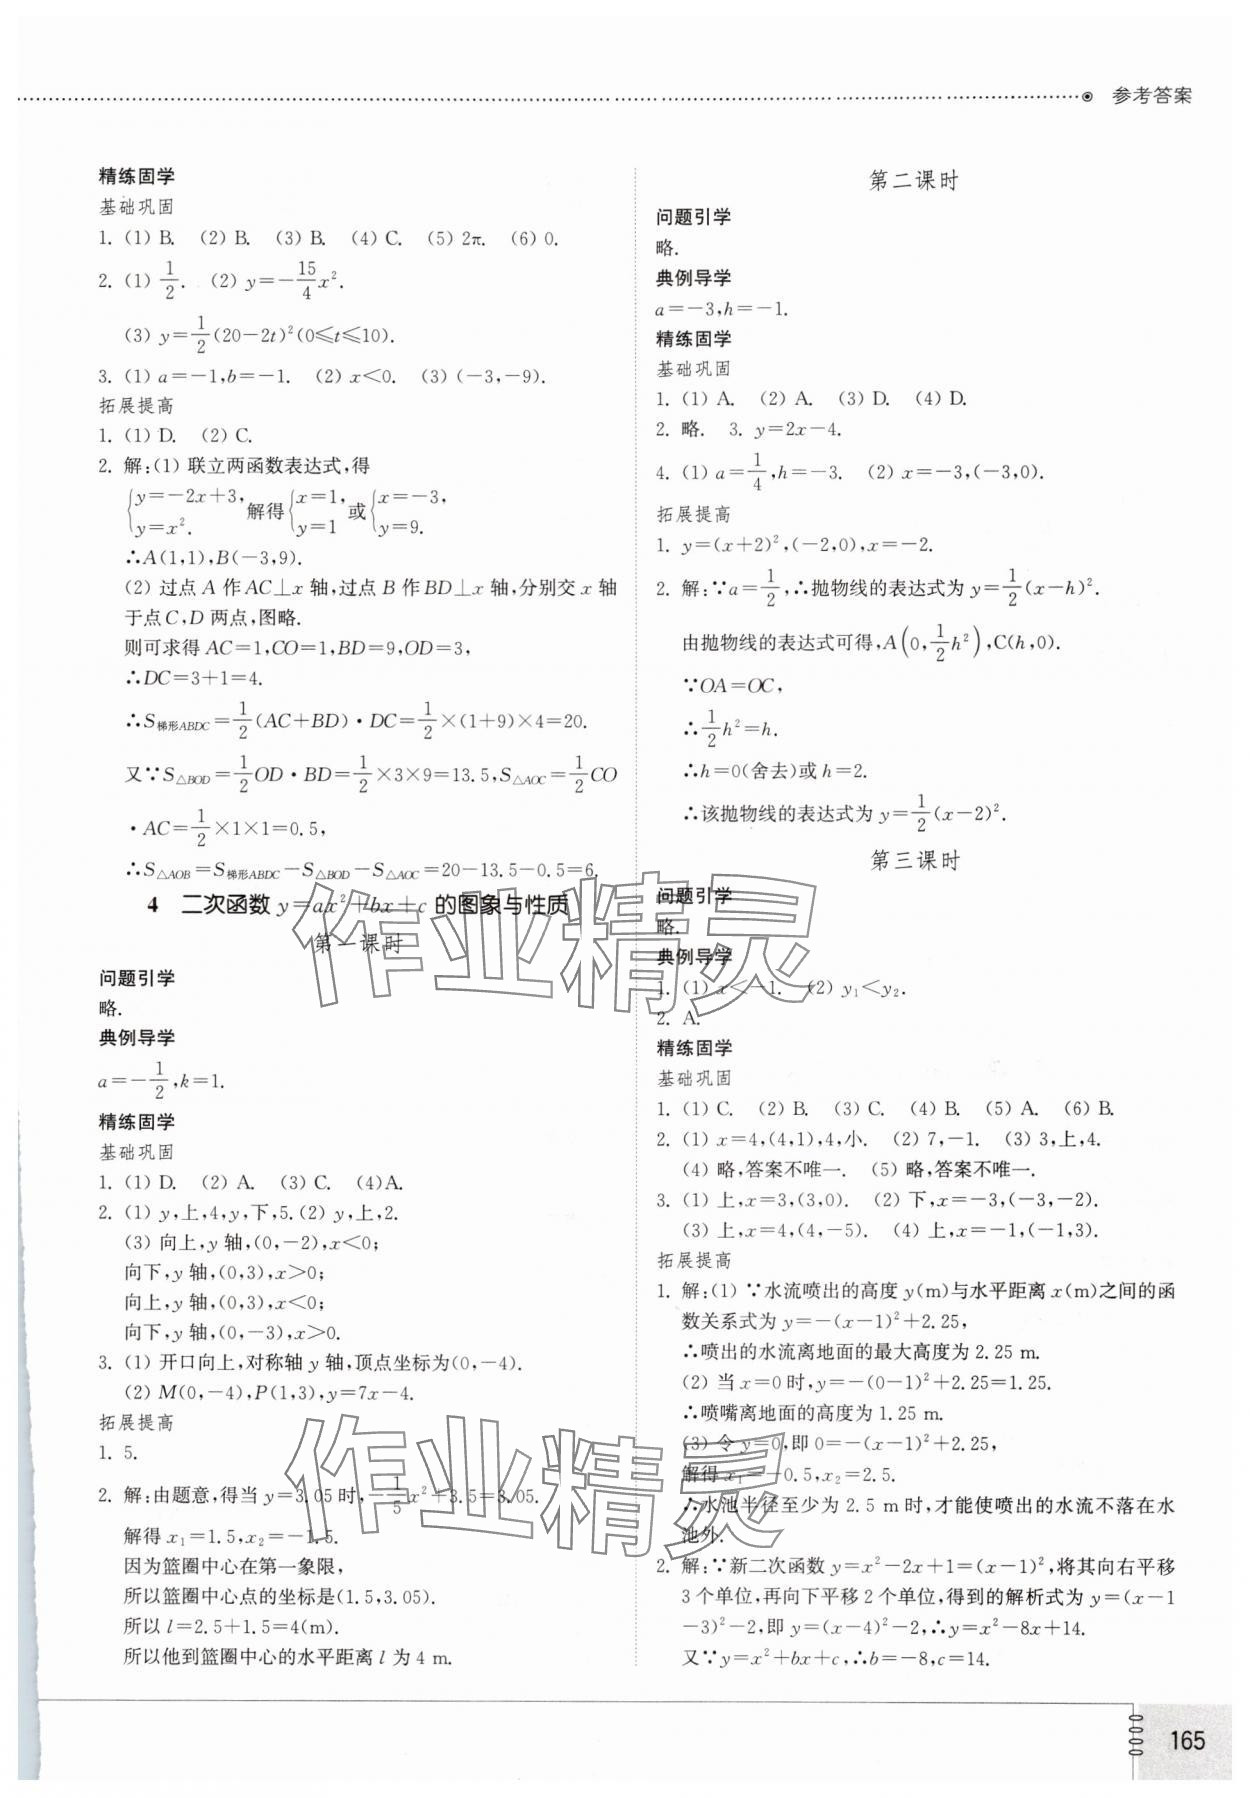 参考答案
精练固学
基础巩固
1. (1) B. (2) B. (3) B. (4) C. (5) 2π. (6) 0.
2. (1) 1/2. (2) y=-15/4x².
(3) y=1/2(20-2t)²(0≤t≤10).
3. (1) a=-1,b=-1. (2) x<0. (3) (-3,-9).
拓展提高
1. (1) D. (2) C.
2. 解:(1) 联立两函数表达式,得
{y=-2x+3, y=x². 解得{x=1, y=1 或{x=-3, y=9.
∴A(1,1),B(-3,9).
(2) 过点 A 作 AC⊥x 轴,过点 B 作 BD⊥x 轴,分别交 x 轴
于点 C,D 两点,图略.
则可求得 AC=1,CO=1,BD=9,OD=3,
∴DC=3+1=4.
∴S梯形ABDC=1/2(AC+BD)·DC=1/2×(1+9)×4=20.
又∵S△BOD=1/2OD·BD=1/2×3×9=13.5,S△AOC=1/2CO
·AC=1/2×1×1=0.5,
∴S△AOB=S梯形ABDC-S△BOD-S△AOC=20-13.5-0.5=6.
4 二次函数 y=ax²+bx+c 的图象与性质
第一课时
问题引学
略.
典例导学
a=-1/2,k=1.
精练固学
基础巩固
1. (1) D. (2) A. (3) C. (4)A.
2. (1) y,上,4,y,下,5.(2) y,上,2.
(3) 向上,y 轴,(0,-2),x<0;
向下,y 轴,(0,3),x>0;
向上,y 轴,(0,3),x<0;
向下,y 轴,(0,-3),x>0.
3. (1) 开口向上,对称轴 y 轴,顶点坐标为(0,-4).
(2) M(0,-4),P(1,3),y=7x-4.
拓展提高
1. 5.
2. 解:由题意,得当 y=3.05 时,-1/5x²+3.5=3.05.
解得 x₁=1.5,x₂=-1.5.
因为篮圈中心在第一象限,
所以篮圈中心点的坐标是(1.5,3.05).
所以 l=2.5+1.5=4(m).
所以他到篮圈中心的水平距离 l 为 4 m.
第二课时
问题引学
略.
典例导学
a=-3,h=-1.
精练固学
基础巩固
1. (1) A. (2) A. (3) D. (4) D.
2. 略. 3. y=2x-4.
4. (1) a=1/4,h=-3. (2) x=-3,(-3,0).
拓展提高
1. y=(x+2)²,(-2,0),x=-2.
2. 解:∵a=1/2,∴抛物线的表达式为 y=1/2(x-h)².
由抛物线的表达式可得,A(0,1/2h²),C(h,0).
∵OA=OC,
∴1/2h²=h.
∴h=0(舍去)或 h=2.
∴该抛物线的表达式为 y=1/2(x-2)².
第三课时
问题引学
略.
典例导学
1. (1) x<-1. (2) y₁<y₂.
2. A.
精练固学
基础巩固
1. (1) C. (2) B. (3) C. (4) B. (5) A. (6) B.
2. (1) x=4,(4,1),4,小. (2) 7,-1. (3) 3,上,4.
(4) 略,答案不唯一. (5) 略,答案不唯一.
3. (1) 上,x=3,(3,0). (2) 下,x=-3,(-3,-2).
(3) 上,x=4,(4,-5). (4) 上,x=-1,(-1,3).
拓展提高
1. 解:(1) ∵水流喷出的高度 y(m)与水平距离 x(m)之间的函
数关系式为 y=-(x-1)²+2.25,
∴喷出的水流离地面的最大高度为 2.25 m.
(2) 当 x=0 时,y=-(0-1)²+2.25=1.25.
∴喷嘴离地面的高度为 1.25 m.
(3) 令 y=0,即 0=-(x-1)²+2.25,
解得 x₁=-0.5,x₂=2.5.
∴水池半径至少为 2.5 m 时,才能使喷出的水流不落在水
池外.
2. 解:∵新二次函数 y=x²-2x+1=(x-1)²,将其向右平移
3 个单位,再向下平移 2 个单位,得到的解析式为 y=(x-1
-3)²-2,即 y=(x-4)²-2,∴y=x²-8x+14.
又∵y=x²+bx+c,∴b=-8,c=14.
165
作业精灵
作业精灵